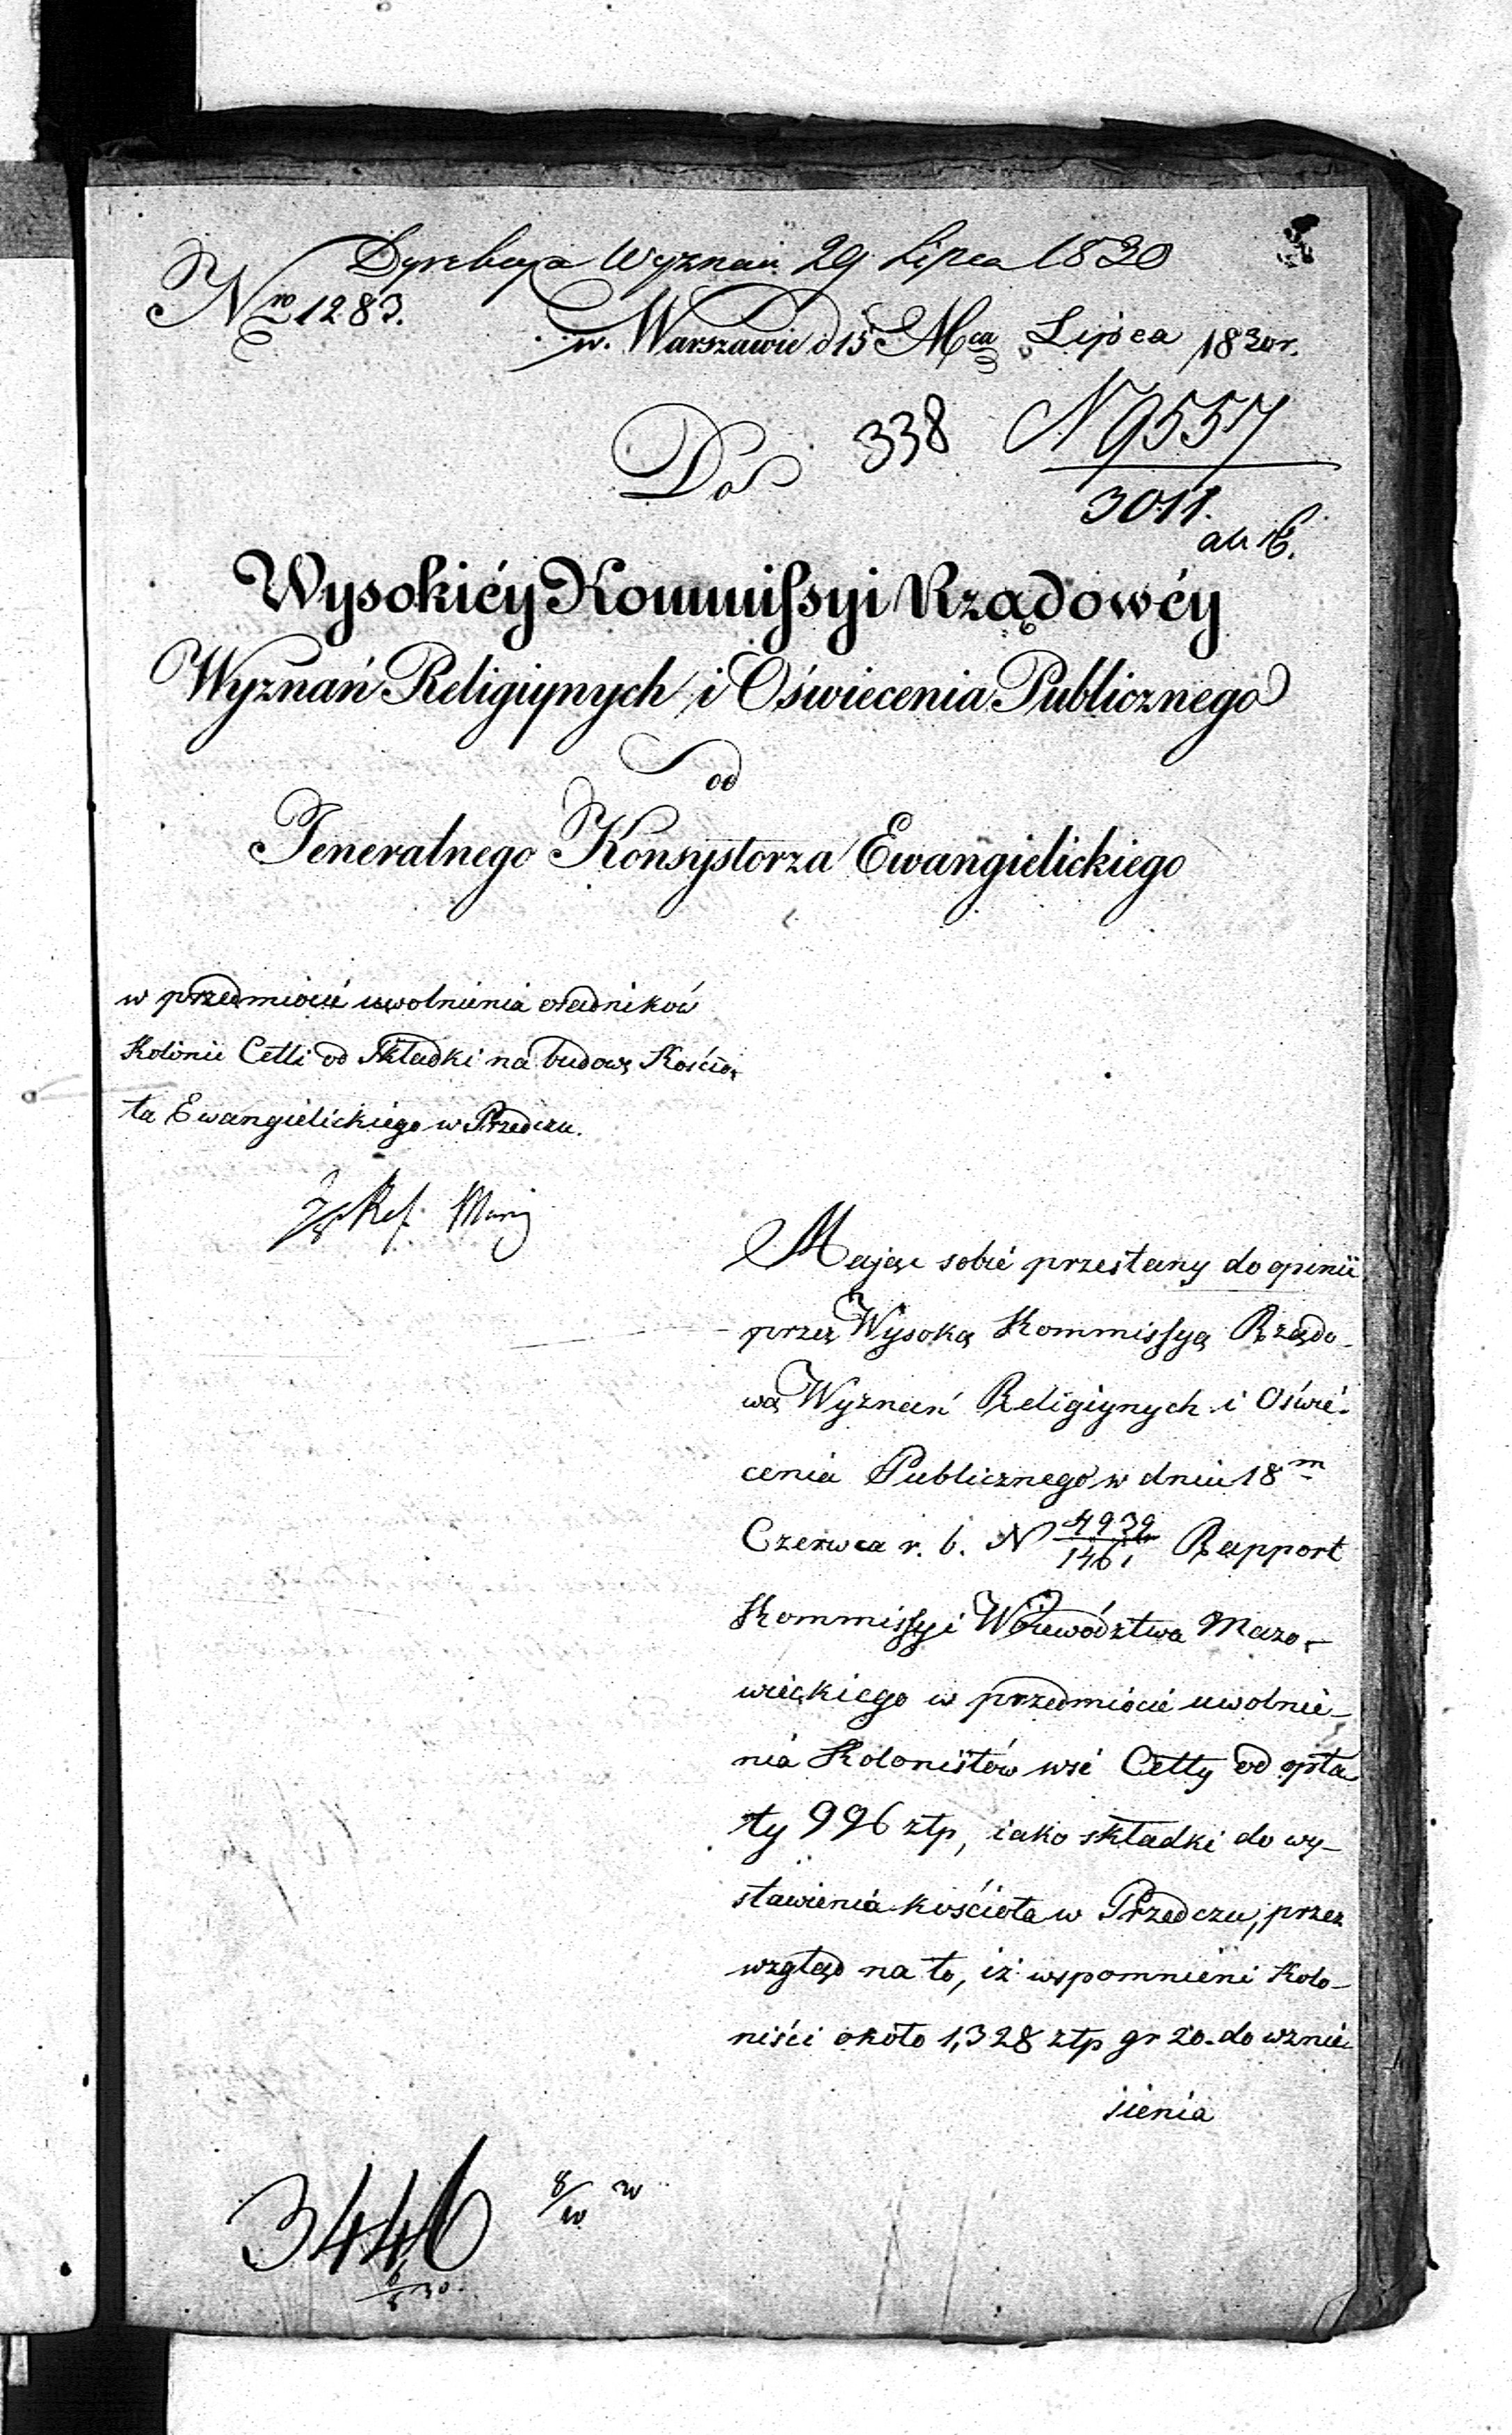 Dyrekcya Wyznań 29 Lipca 1830
Nro 1283.
w. Warszawie d 15 Mca Lipca 1830 r.
Do 338 N 9557
3011.
Wysokiéy Kommissyi Rządowéy
Wyznań Religiynych i Oświecenia Publicznego
od
Jeneralnego Konsystorza Ewangielickiego
w przedmiocie uwolnienia osadników
Kolonii Cetti od Składki na budowę Kościo-
ła Ewangielickiego w Przedczu.
Ref.
Mając sobie przesłany do opinii
przez Wysoką Kommissyą Rządo-
wą Wyznań Religiynych i Oświe-
cenia Publicznego w dniu 18 m
Czerwca r. b. N 4939/1461 Rapport
Kommissyi Woiewództwa Mazo-
wieckiego w przedmiocie uwolnie-
nia Kolonistów wsi Cetty od opła
ty 996 złp, iako składki do wy-
stawienia kościoła w Przedczu, przez
wzgląd na to, iż wspomnieni Kolo-
niści około 1,328 złp gr 20. do wznie
sienia
3446